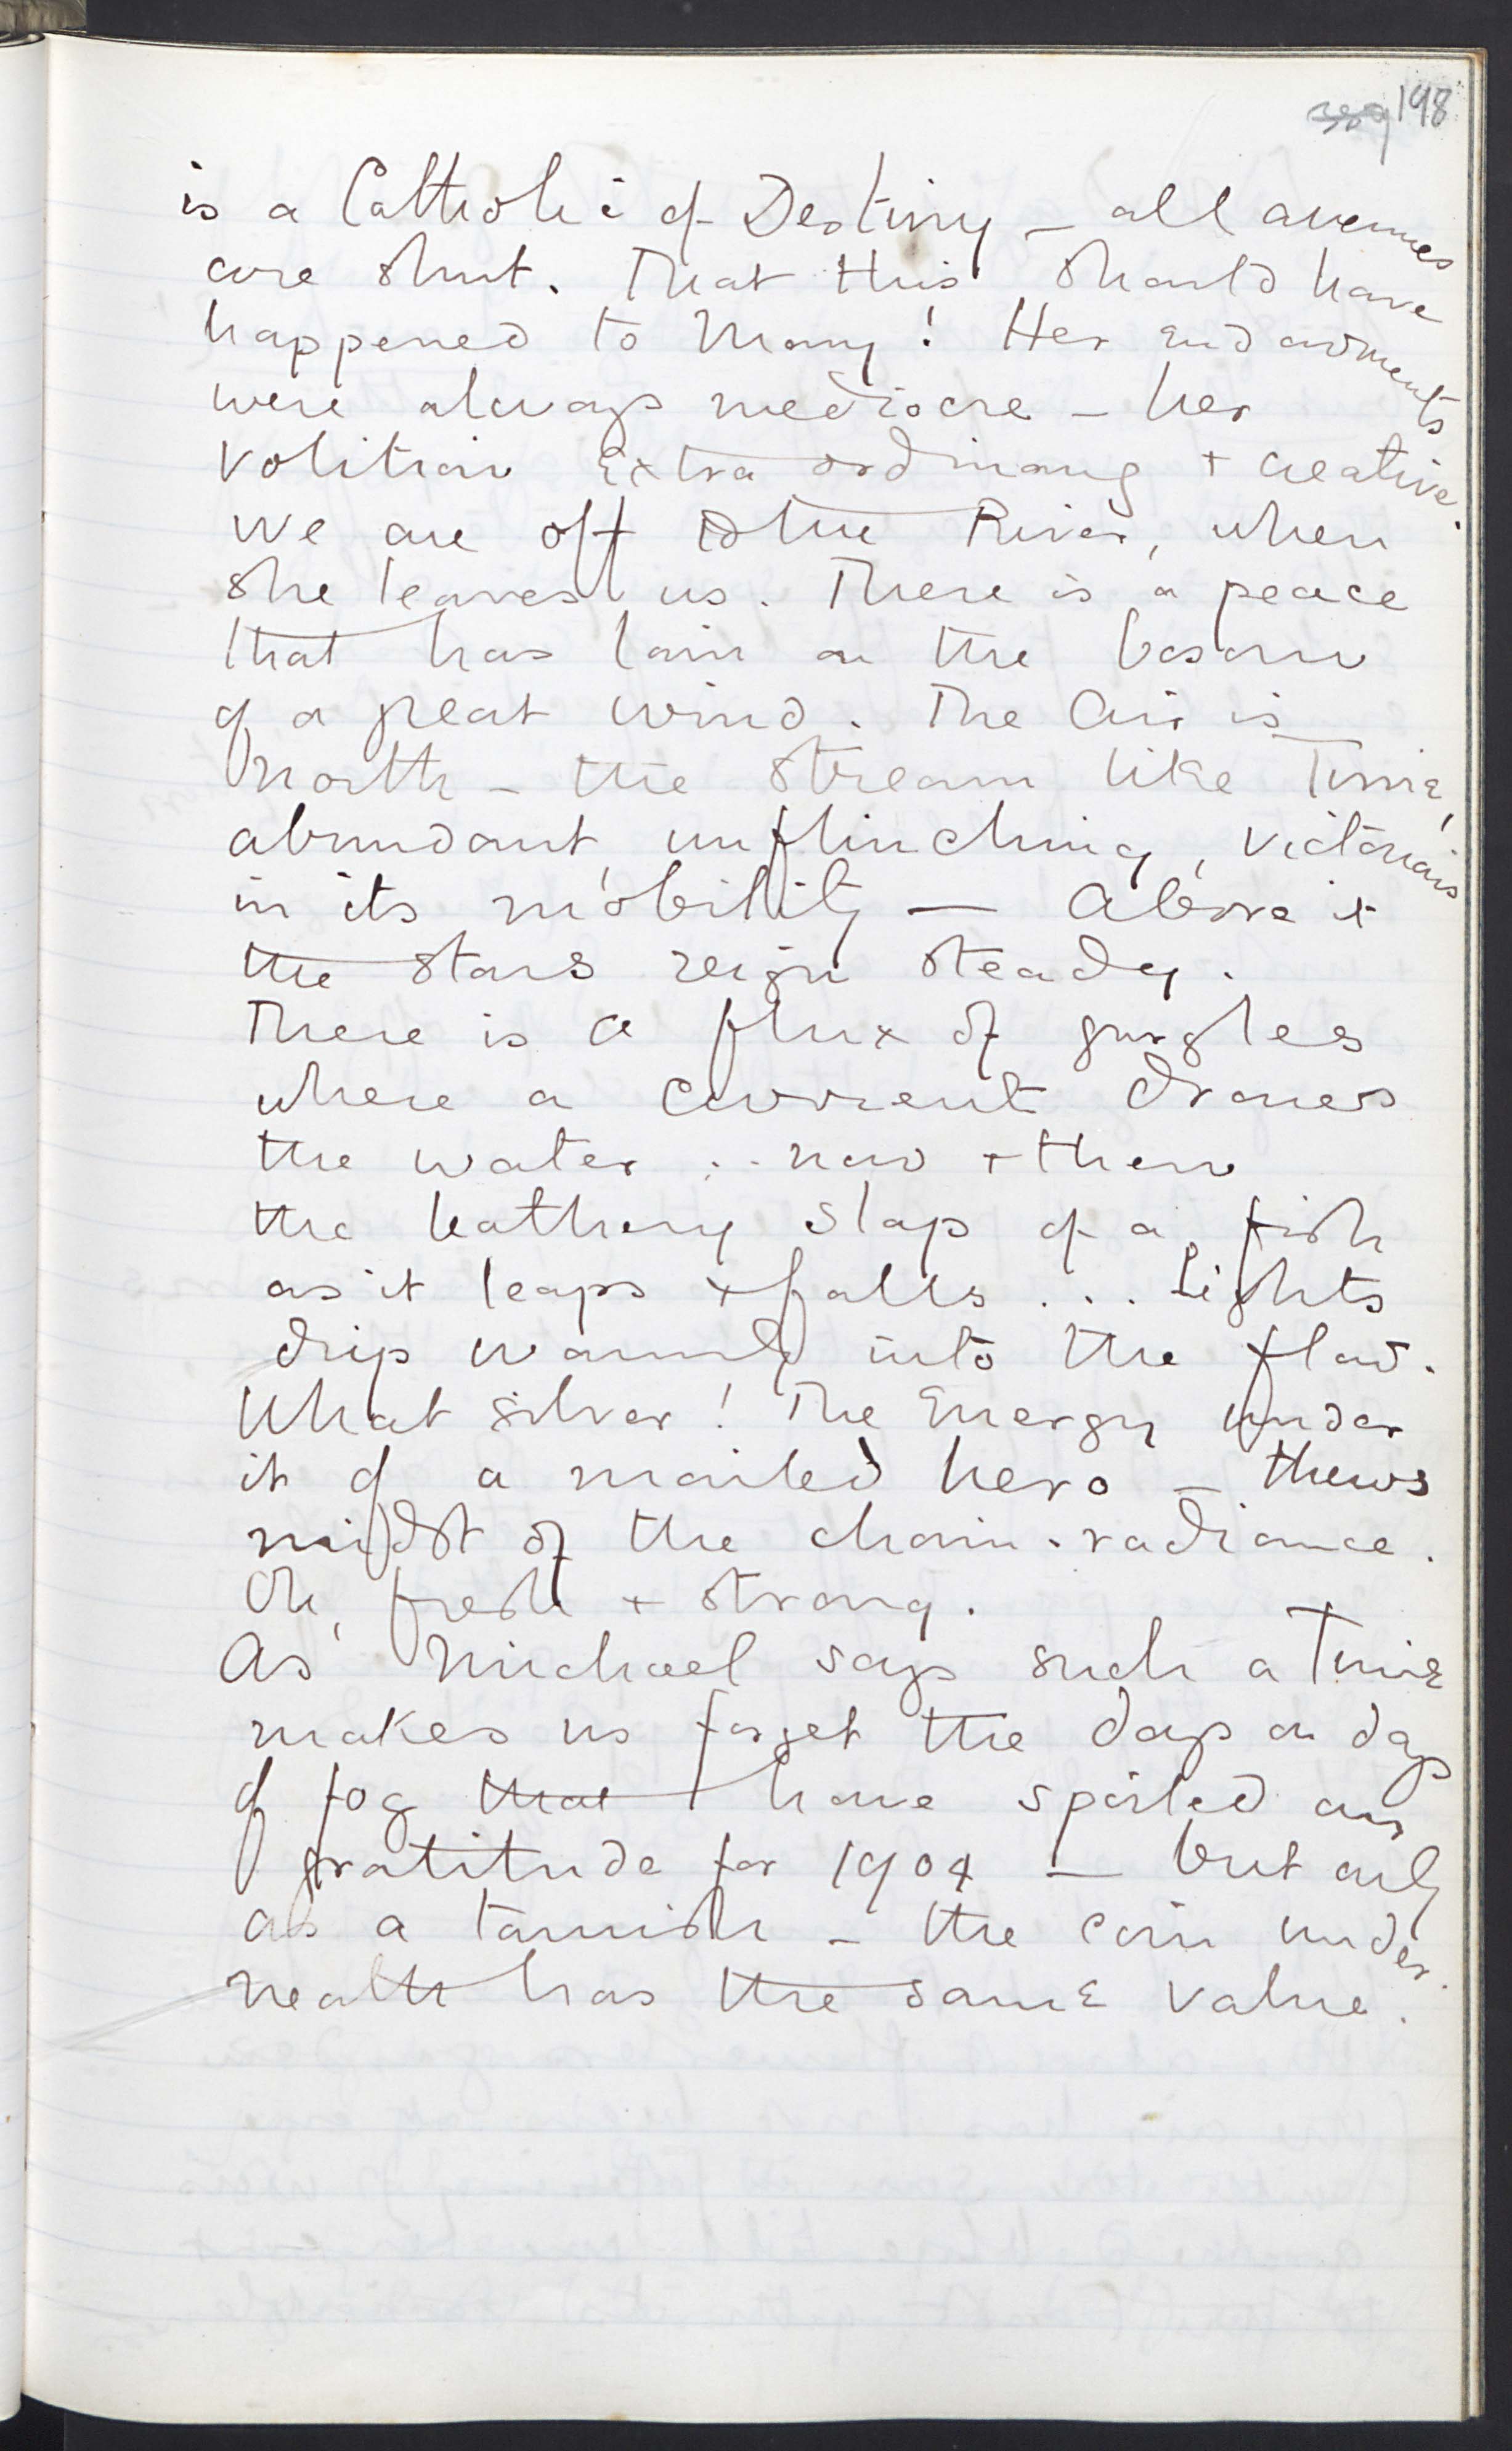 198
is a Catholic of Destiny – all avenues
are shut. That this should have
happened to Mary! Her Endowments
were always mediocre – her
volition Extraordinary + creative.
We are off to the River, when
she leaves us. There is a peace
that has lain on the bosom
of a great wind. The Air is
North – the stream like Time,
abundant, unflinching, victorious
in its mobility — Above it
the stars reign steady.
There is a flux of gurgles
where a current drones
the water ... now + then
the leathery slap of a fish
as it leaps + falls ... Lights
drip warmly into the flow.
What silver! The Energy under
it of a mailed hero – thews
midst of the chain-radiance.
Oh, fresh + strong.
As Michael says such a Time
makes us forget the days on days
of fog that have spoiled our
gratitude for 1904 — but only
as a tarnish – the coin under-
neath has the same value.